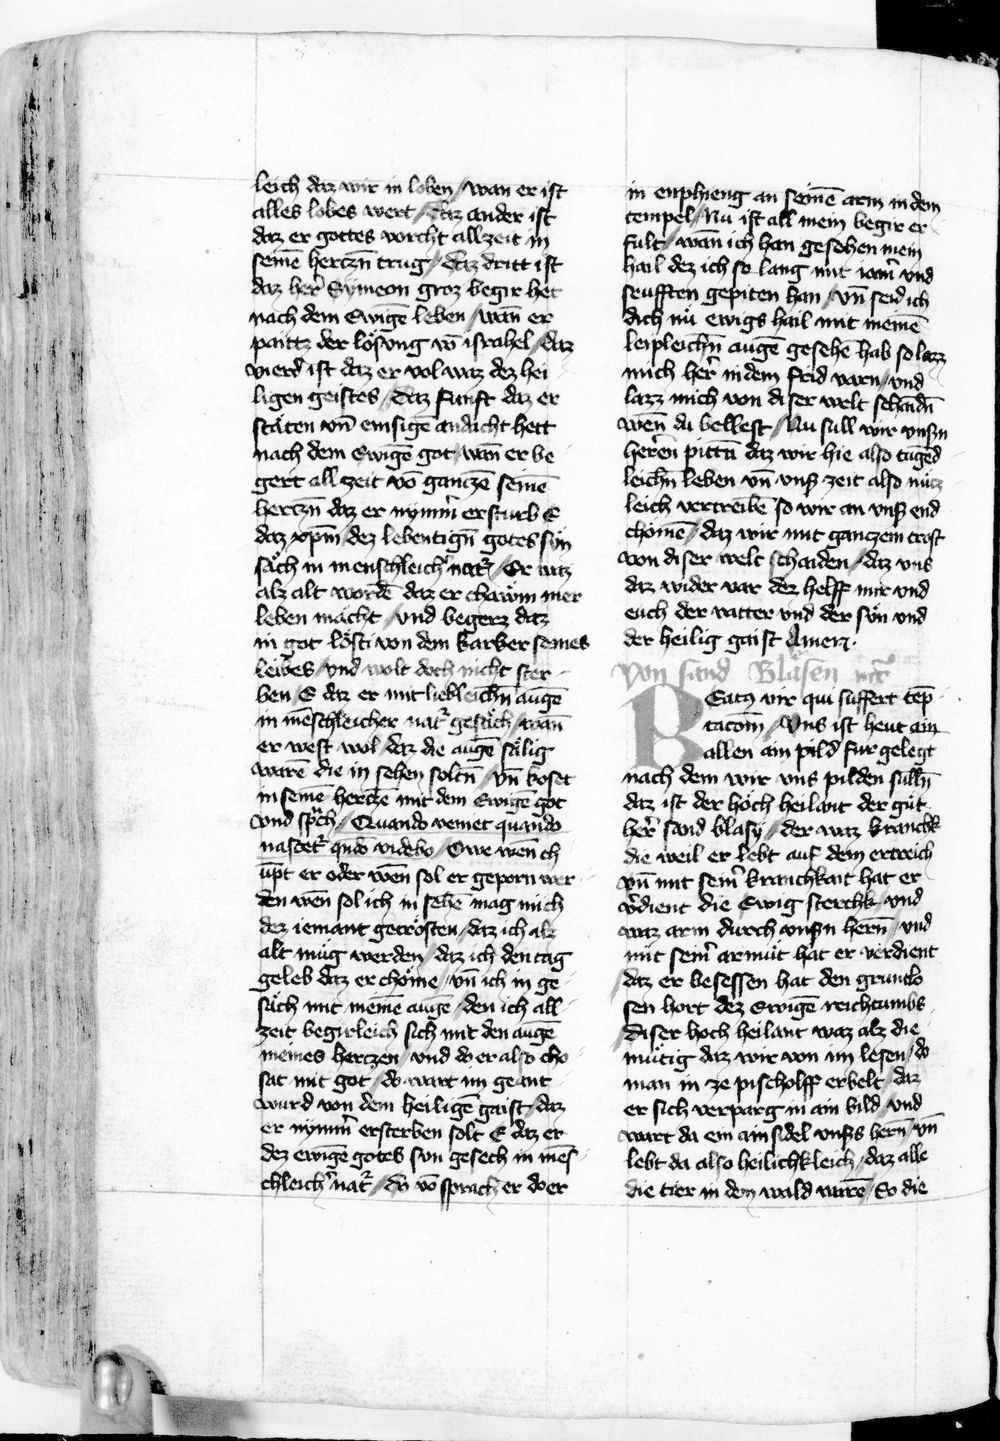 leich daz wir in loben / wan er ist
alles lobes wert / Daz ander ist
daz er gottes vorcht allzeit in
seinē hertzn̄ trug / Daz dritt ist
daz her̄ Symeon groz begir het
nach dem Ewigē leben / wan̄ er
paittz der lösung vō israhel / daz
vierd ist daz er vol waz dez hei
ligen geistes / Daz funft daz er
stäten vn̄ emsigē andacht hett
nach dem Ewigē got / wan̄ er be
gert all zeit vō ganczē seinē
hertzn̄ daz er nymm̄ ersturb E
daz xp̄m dez lebentign̄ gotes sün
säch in menschleich̄ nat̄ / Er waz
alz alt wordē daz er chawm mer
leben macht / und begerz daz
in got lösti von dem karker seines
leibes / und wolt doch nicht ster
ben / E daz er mit liebleichn̄ augē
in mēschleicher nat̄ gesäch / wan̄
er west wol / daz die augē sälig
warē die in sehen soltn̄ / vn̄ koset
in seinē hertzē mit dem Ewigē got
vnd sp̄ch / Quando veniet quando
nascet̄ qn̄do videbo / Owe wen̄ ch
ūpt er oder wen̄ sol er geporn wer
den wen̄ sol ich in sehē mag mich
dez iemant getrösten / daz ich alz
alt müg werden / daz ich den tag
geleb daz er chöme / vn̄ ich in ge
säch mit meinē augē / den ich all
zeit begirleich sich mit den augē
meines hertzen / vnd do er also cho
sat mit got / do wart im geant
wurd von dem heiligē gaist / daz
er nymm̄ ersterben solt E daz er
dez ewigē gotes sun gesech in mēs
chleich̄ nat̄ / do vō sprach er do er
in enphieng an seinē arm in dem
tempel / Nu ist all mein begir er
fult / wan̄ ich han gesehen mein
hail dez ich so lang mit iam̄ vnd
seufften gepiten han / vn̄ seid ich
dich nu ewigs hail mit meinē
leipleichn̄ augē gesehē hab so lazz
mich her̄ in dem frid varn / vnd
lazz mich von diser welt schaidn̄
wen̄ du bellest / Nu sull wir vnsn̄
herēn pittn̄ daz wir hie also tugēd
leichn̄ leben vn̄ vns̄ zeit also nücz
leich vertreibē so wir an vns̄ end
chömē / daz wir mit ganczem trost
von diser welt schaiden / daz vns
daz wider var dez helff mir vnd
euch der vatter vnd der sün vnd
der heilig gaist Amen.
Von sand Bläsen m̄r
BEatus vir qui suffert tēp
tacom̄ / Vns ist heut ain
allen ain pild fur gelegt
nach dem wir vns pilden sulln̄
daz ist der höch heilant der güt
her̄ sand blasy / der waz kranchk
die weil er lebt auf dem ertreich
vn̄ mit sein̄ kranchkait hat er
v̄dient die Ewig sterchk / vnd
waz arm durch vnsn̄ hern̄ / vnd
mit sein̄ armüt hat er verdient
daz er besessen hat den gruntlo
sen hort dez Ewigē reichtumbs
Diser hoch heilant waz alz die
mütig daz wir von im lesen / do
man in ze pischolff erbelt / daz
er sich verparg in ain bild / vnd
wart da ein ainsidel vns̄s hern̄ / vn̄
lebt da also heilichkleich / daz alle
die tier in dem wald warē / So die